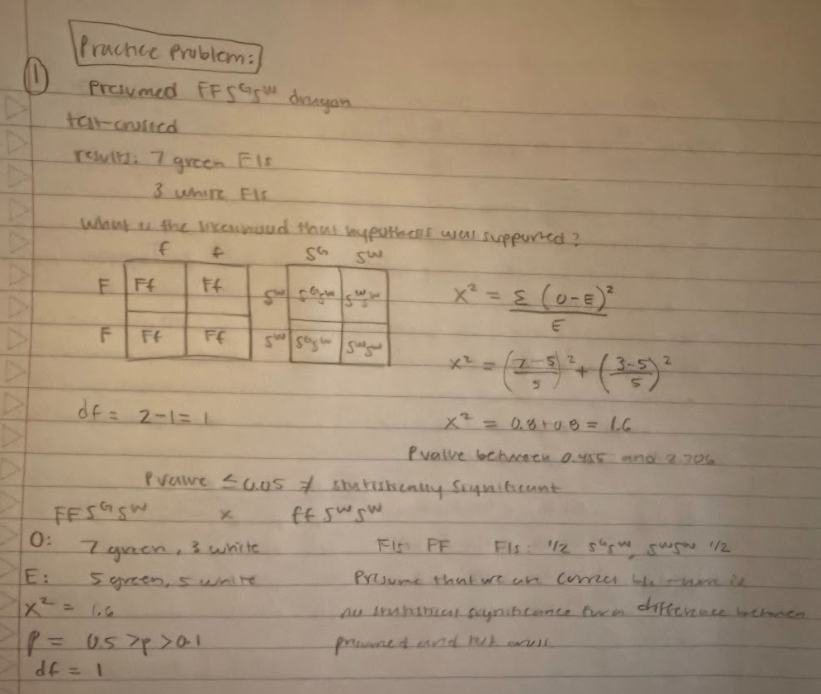 Practice Problem:
① Presumed FFSᴳSᵂ dragon
test-crossed
results: 7 green F1s
3 white F1s
What is the likelihood that hypothesis was supported?
f f
F Ff Ff
F Ff Ff
Sᴳ Sᵂ
Sᵂ SᴳSᵂ SᵂSᵂ
Sᵂ SᴳSᵂ SᵂSᵂ
X² = Σ (O-E)² / E
X² = (7-5 / 5)² + (3-5 / 5)²
df = 2-1 = 1
X² = 0.8+0.8 = 1.6
P value between 0.455 and 2.706
P value ≤ 0.05 ≠ statistically significant
FFSᴳSᵂ x ffSᵂSᵂ
O: 7 green, 3 white
F1s FF F1s: 1/2 SᴳSᵂ, SᵂSᵂ 1/2
E: 5 green, 5 white
Presume that we are correct b/c there is
X² = 1.6
no statistical significance difference between
p = 0.5 >p> 0.1
presumed and test cross
df = 1